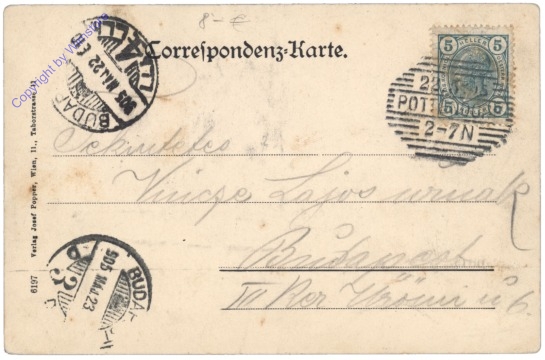 8 - €
Correspondenz-Karte.
Copyright by
5 HELLER 5
5 5
22
POTT
2-7N
BUDAP
905 MAJ. 22
Vincze Lajos urnak
Budapest
III Ker Ürömi u 6.
6197 Verlag Josef Popper, Wien, II., Taborstrasse
BUDAP
905 MAJ. 23